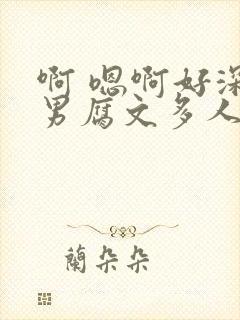 啊 嗯啊好深
男腐文多人
蘭朵朵